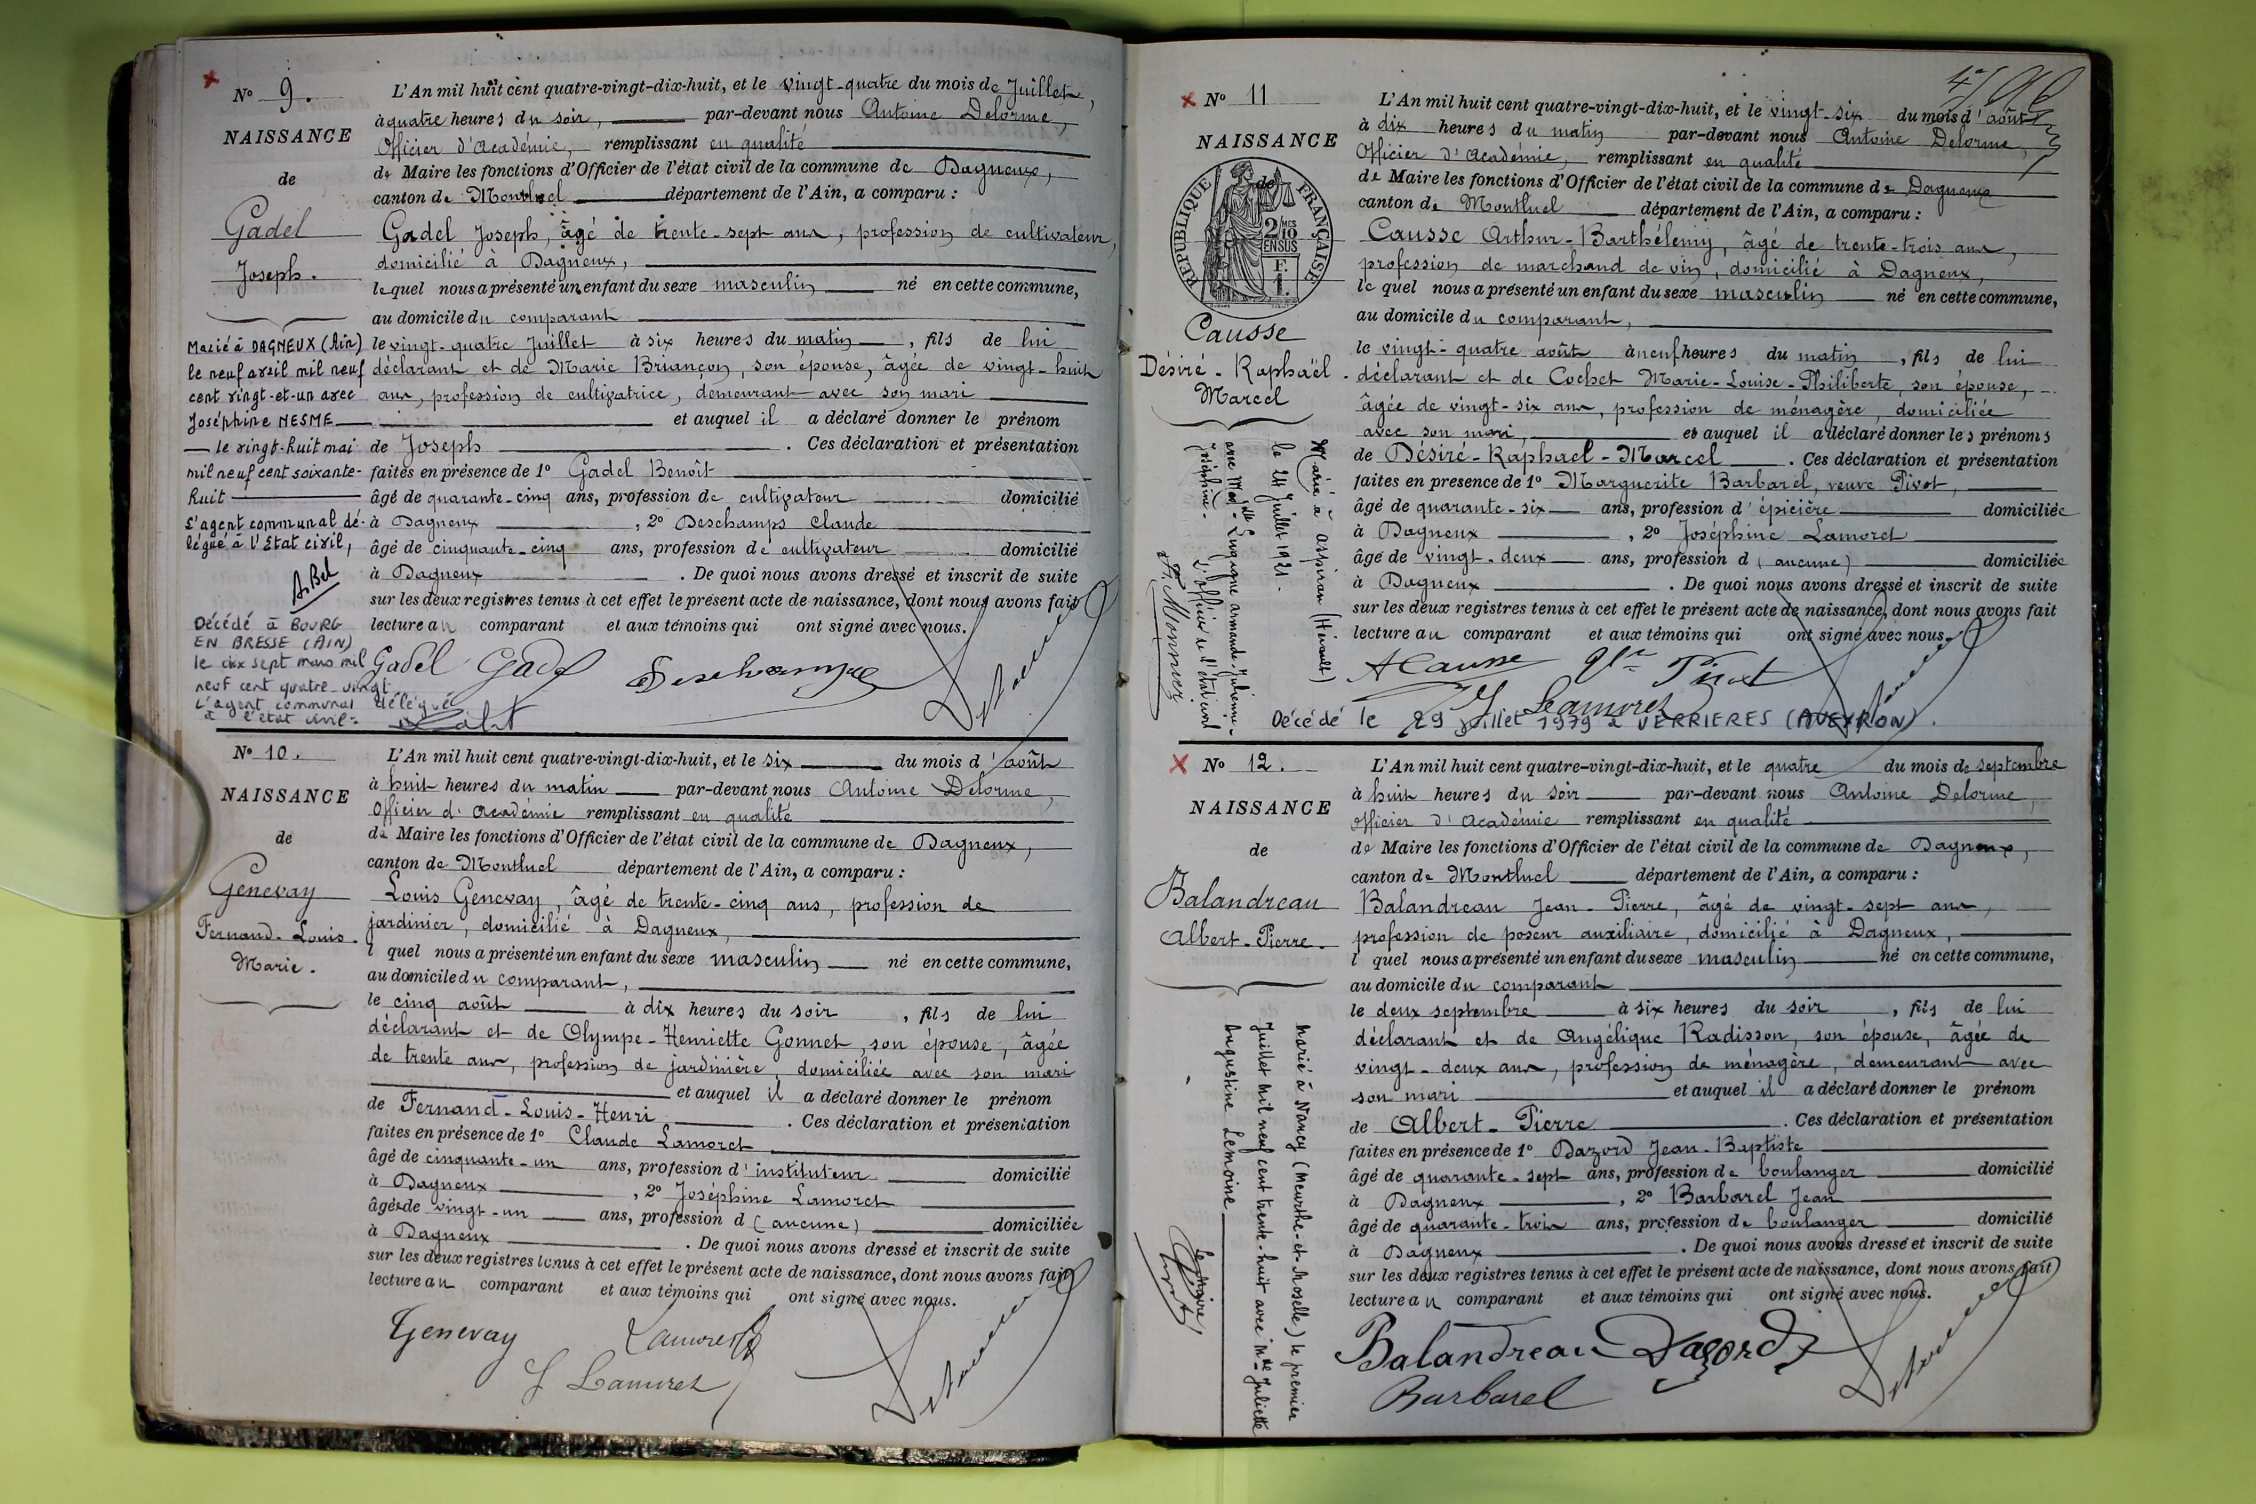 N° 9.
NAISSANCE
de
Gadel
Joseph.
Marié à DAGNEUX (Ain)
le neuf avril mil neuf
cent vingt-et-un avec
Joséphine NESME
le vingt-huit mai
mil neuf cent soixante-
huit
L'agent communal dé-
légué à l'Etat civil,
Décédé à BOURG
EN BRESSE (AIN)
le dix sept mars mil
neuf cent quatre-vingt.
L'agent communal délégué
à l'état civil:
L'An mil huit cent quatre-vingt-dix-huit, et le vingt-quatre du mois de Juillet,
à quatre heures du soir, par-devant nous Antoine Delorme,
Officier d'Académie, remplissant en qualité
de Maire les fonctions d'Officier de l'état civil de la commune de Dagneux,
canton de Montluel département de l'Ain, a comparu :
Gadel Joseph, âgé de trente-sept ans, profession de cultivateur,
domicilié à Dagneux,
lequel nous a présenté un enfant du sexe masculin né en cette commune,
au domicile du comparant
le vingt-quatre Juillet à six heures du matin, fils de lui
déclarant et de Marie Briançon, son épouse, âgée de vingt-huit
ans, profession de cultivatrice, demeurant avec son mari
et auquel il a déclaré donner le prénom
de Joseph. Ces déclaration et présentation
faites en présence de 1° Gadel Benoît
âgé de quarante-cinq ans, profession de cultivateur domicilié
à Dagneux, 2° Deschamps Claude
âgé de cinquante-cinq ans, profession de cultivateur domicilié
à Dagneux. De quoi nous avons dressé et inscrit de suite
sur les deux registres tenus à cet effet le présent acte de naissance, dont nous avons fait
lecture au comparant et aux témoins qui ont signé avec nous.
Gadel Gadel Deschamps Delorme
N° 10.
NAISSANCE
de
Genevay
Fernand-Louis-
Marie.
L'An mil huit cent quatre-vingt-dix-huit, et le six du mois d'août
à huit heures du matin par-devant nous Antoine Delorme,
Officier d'Académie remplissant en qualité
de Maire les fonctions d'Officier de l'état civil de la commune de Dagneux,
canton de Montluel département de l'Ain, a comparu :
Louis Genevay, âgé de trente-cinq ans, profession de
jardinier, domicilié à Dagneux,
l quel nous a présenté un enfant du sexe masculin né en cette commune,
au domicile du comparant,
le cinq août à dix heures du soir, fils de lui
déclarant et de Olympe-Henriette Gonnet, son épouse, âgée
de trente ans, profession de jardinière, domiciliée avec son mari
et auquel il a déclaré donner le prénom
de Fernand-Louis-Henri. Ces déclaration et présentation
faites en présence de 1° Claude Lamoret
âgé de cinquante-un ans, profession d'instituteur domicilié
à Dagneux, 2° Joséphine Lamoret
âgée de vingt-un ans, profession d (aucune) domiciliée
à Dagneux. De quoi nous avons dressé et inscrit de suite
sur les deux registres tenus à cet effet le présent acte de naissance, dont nous avons fait
lecture au comparant et aux témoins qui ont signé avec nous.
Genevay Lamoret
J Lamoret Delorme
N° 11
NAISSANCE
de
RÉPUBLIQUE FRANÇAISE
2/10 MES
EN SUS
1 F.
Causse
Désiré-Raphaël-
Marcel
Marié à Aspiran (Hérault)
le 24 Juillet 1921.
avec Melle Eugénie Armande Julienne-
L'officier de l'état civil
L'An mil huit cent quatre-vingt-dix-huit, et le vingt-six du mois d'août
à dix heures du matin par-devant nous Antoine Delorme,
Officier d'Académie, remplissant en qualité
de Maire les fonctions d'Officier de l'état civil de la commune de Dagneux
canton de Montluel département de l'Ain, a comparu :
Causse Arthur-Barthélemy, âgé de trente-trois ans,
profession de marchand de vin, domicilié à Dagneux,
le quel nous a présenté un enfant du sexe masculin né en cette commune,
au domicile du comparant,
le vingt-quatre août à neuf heures du matin, fils de lui
déclarant et de Cochet Marie-Louise-Philiberte, son épouse,
âgée de vingt-six ans, profession de ménagère, domiciliée
avec son mari, et auquel il a déclaré donner les prénoms
de Désiré-Raphaël-Marcel. Ces déclaration et présentation
faites en présence de 1° Marguerite Barbarel, veuve Pivot,
âgé de quarante-six ans, profession d'épicière domiciliée
à Dagneux, 2° Joséphine Lamoret
âgé de vingt-deux ans, profession d (aucune) domiciliée
à Dagneux. De quoi nous avons dressé et inscrit de suite
sur les deux registres tenus à cet effet le présent acte de naissance, dont nous avons fait
lecture au comparant et aux témoins qui ont signé avec nous.
A Causse Vve Pivot
J Lamoret Delorme
Décédé le 29 juillet 1979 à VERRIERES (AVEYRON).
N° 12.
NAISSANCE
de
Balandreau
Albert-Pierre.
Marié à Nancy (Meurthe-et-Moselle) le premier
Juillet mil neuf cent trente-huit avec Melle Juliette
Augustine Lemoine
Le Maire
L'An mil huit cent quatre-vingt-dix-huit, et le quatre du mois de septembre
à huit heures du soir par-devant nous Antoine Delorme,
Officier d'Académie remplissant en qualité
de Maire les fonctions d'Officier de l'état civil de la commune de Dagneux,
canton de Montluel département de l'Ain, a comparu :
Balandreau Jean-Pierre, âgé de vingt-sept ans,
profession de poseur auxiliaire, domicilié à Dagneux,
l quel nous a présenté un enfant du sexe masculin né en cette commune,
au domicile du comparant
le deux septembre à six heures du soir, fils de lui
déclarant et de Angélique Radisson, son épouse, âgée de
vingt-deux ans, profession de ménagère, demeurant avec
son mari et auquel il a déclaré donner le prénom
de Albert-Pierre. Ces déclaration et présentation
faites en présence de 1° Dazord Jean-Baptiste
âgé de quarante-sept ans, profession de boulanger domicilié
à Dagneux, 2° Barbarel Jean
âgé de quarante-trois ans, profession de boulanger domicilié
à Dagneux. De quoi nous avons dressé et inscrit de suite
sur les deux registres tenus à cet effet le présent acte de naissance, dont nous avons fait
lecture au comparant et aux témoins qui ont signé avec nous.
Balandreau Dazord
Barbarel Delorme